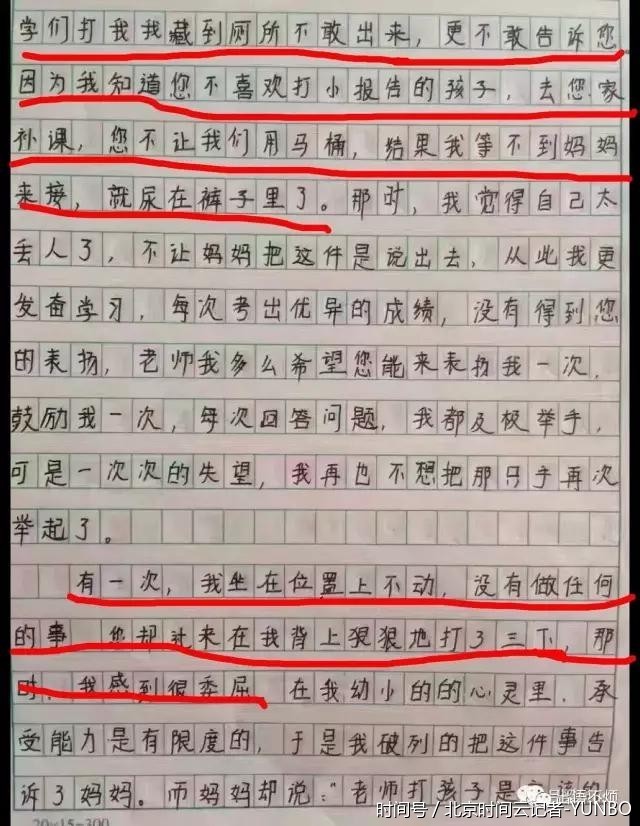 学们打我我藏到厕所不敢出来，更不敢告诉您
因为我知道您不喜欢打小报告的孩子，去您家
补课，您不让我们用马桶，结果我等不到妈妈
来接，就尿在裤子里了。那时，我觉得自己太
丢人了，不让妈妈把这件是说出去，从此我更
发奋学习，每次考出优异的成绩，没有得到您
的表扬，老师我多么希望您能来表扬我一次，
鼓励我一次，每次回答问题，我都及极举手，
可是一次次的失望，我再也不想把那只手再次
举起了。
有一次，我坐在位置上不动，没有做任何
的事 您却过来在我背上狠狠地打了三下，那
时，我感到很委屈 在我幼小的的心灵里，承
受能力是有限度的，于是我破列的把这件事告
诉了妈妈。而妈妈却说："老师打孩子是
20×15=300
时间号 / 北京时间云记者-YUNBO